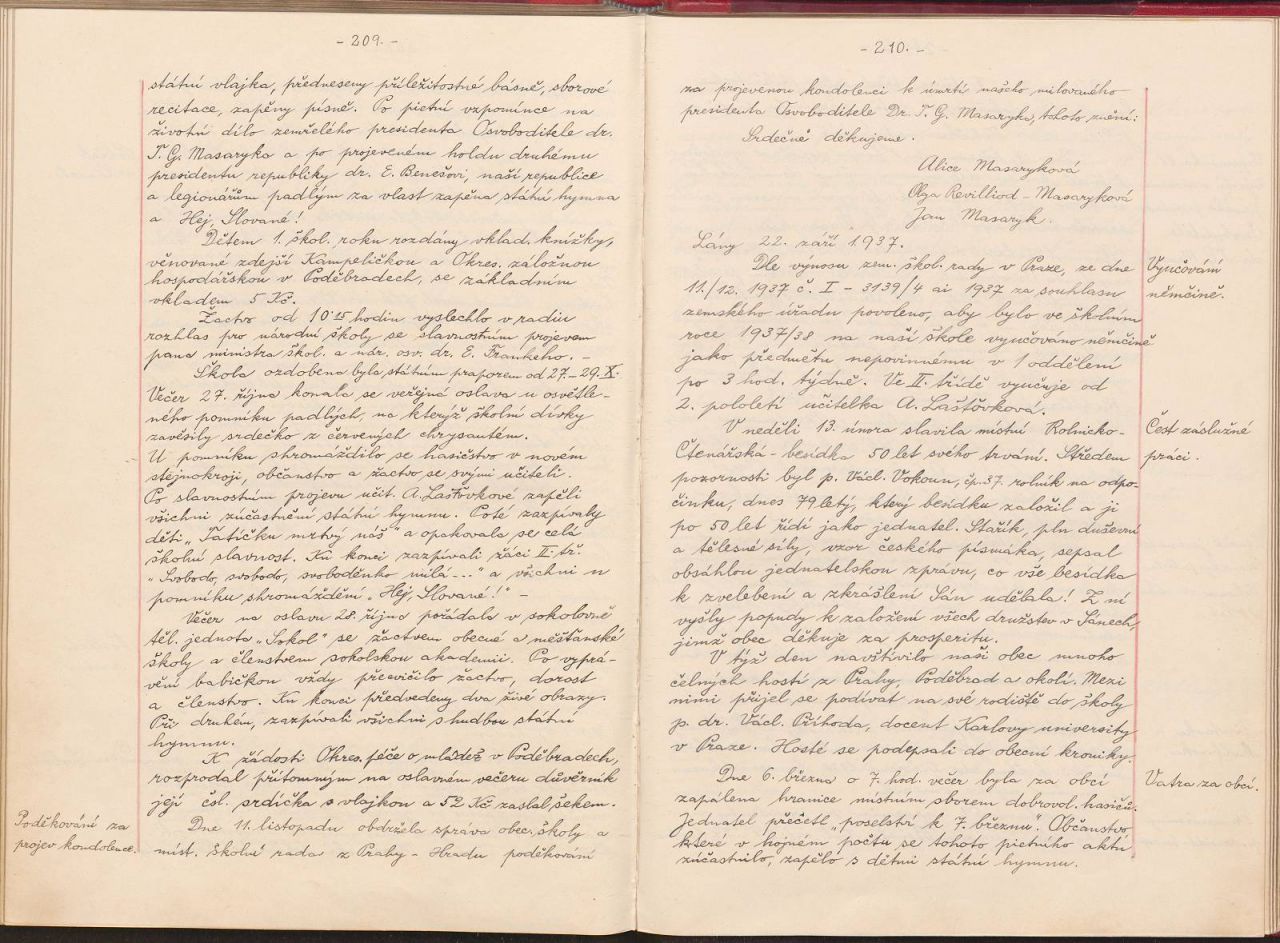 - 209. -
státní vlajka, předneseny příležitostné básně, sborové
recitace, zapěny písně. Po pietní vzpomínce na
životní dílo zemřelého presidenta Osvoboditele dr.
T. G. Masaryka a po projeveném holdu druhému
presidentu republiky dr. E. Benešovi, naší republice
a legionářům padlým za vlast zapěna státní hymna
a Hej, Slované!
Dětem 1. škol. roku rozdány vklad. knížky,
věnované zdejší Kampeličkou a Okres. záložnou
hospodářskou v Poděbradech, se základním
vkladem 5 Kč.
Žactvo od 10·15 hodin vyslechlo v radiu
rozhlas pro národní školy se slavnostním projevem
pana ministra škol. a nár. osv. dr. E. Frankeho. -
Škola ozdobena byla státním praporem od 27.-29.X.
Večer 27. října konala se veřejná oslava u osvětle-
ného pomníku padlých, na kterýž školní dívky
zavěsily srdéčko z červených chrysantém.
U pomníku shromáždilo se hasičstvo v novém
stejnokroji, občanstvo a žactvo se svými učiteli.
Po slavnostním projevu učit. A. Laštovkové zapěli
všichni zúčastnění státní hymnu. Poté zazpívaly
děti „Tatíčku mrtvý náš" a opakovala se celá
školní slavnost. Ku konci zazpívali žáci II. tř.
„Svobodo, svobodo, svoboděnko milá..." a všichni u
pomníku shromáždění „Hej, Slované!" -
Večer na oslavu 28. října pořádala v sokolovně
těl. jednota „Sokol" se žactvem obecné a měšťanské
školy a členstvem sokolskou akademii. Po vyprá-
vění babičkou vždy precvičilo žactvo, dorost
a členstvo. Ku konci předvedeny dva živé obrazy.
Při druhém, zazpívali všichni s hudbou státní
hymnu.
K žádosti Okres. péče o mládež v Poděbradech,
rozprodal přítomným na oslavném večeru důvěrník
její čsl. srdíčka s vlajkou a 52 Kč zaslal šekem.
Poděkování za
projev kondolence.
Dne 11. listopadu obdržela správa obec. školy a
míst. školní rada z Prahy - Hradu poděkování
- 210. -
za projevenou kondolenci k úmrtí našeho milovaného
presidenta Osvoboditele Dr. T. G. Masaryka, tohoto znění:
Srdečně děkujeme.
Alice Masaryková
Olga Revilliod - Masaryková
Jan Masaryk.
Lány 22. září 1937.
Vyučování
němčině.
Dle výnosu zem. škol. rady v Praze, ze dne
11./12. 1937 č. I - 3139/4 ai 1937 za souhlasu
zemského úřadu povoleno, aby bylo ve školním
roce 1937/38 na naší škole vyučováno němčině
jako předmětu nepovinnému v 1 oddělení
po 3 hod. týdně. Ve II. třídě vyučuje od
2. pololetí učitelka A. Laštovková.
Čest záslužné
práci.
V neděli 13. února slavila místní Rolnicko-
Čtenářská - besídka 50 let svého trvání. Středem
pozornosti byl p. Václ. Vokoun, čp. 37. rolník na odpo-
činku, dnes 79 letý, který besídku založil a ji
po 50 let řídí jako jednatel. Stařík, pln duševní
a tělesné síly, vzor českého písmáka, sepsal
obsáhlou jednatelskou zprávu, co vše besídka
k zvelebení a zkrášlení Sán udělala! Z ní
vyšly popudy k založení všech družstev v Sánech,
jimž obec děkuje za prosperitu.
V týž den navštívilo naši obec mnoho
čelných hostí z Prahy, Poděbrad a okolí. Mezi
nimi přijel se podívat na své rodiště do školy
p. dr. Václ. Příhoda, docent Karlovy university
v Praze. Hosté se podepsali do obecní kroniky.
Vatra za obcí.
Dne 6. března o 7. hod. večer byla za obcí
zapálena hranice místním sborem dobrovol. hasičů.
Jednatel přečetl „poselství k 7. březnu". Občanstvo,
které v hojném počtu se tohoto pietního aktu
zúčastnilo, zapělo s dětmi státní hymnu.